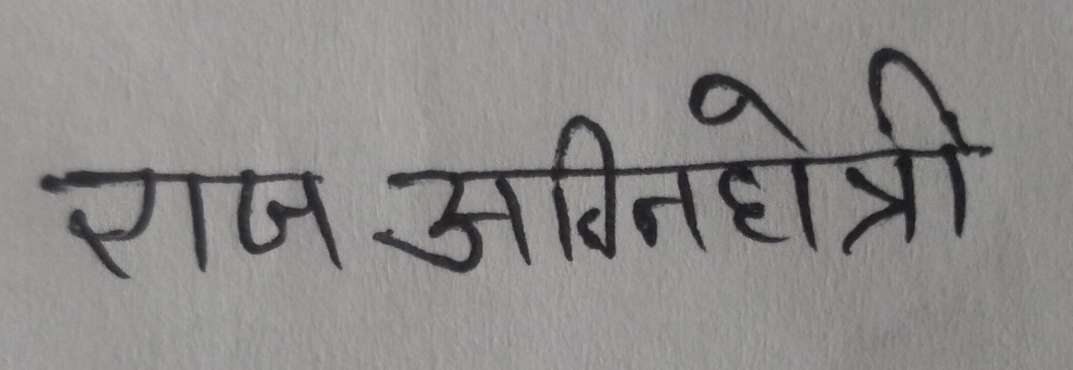 राज अग्निहोत्री